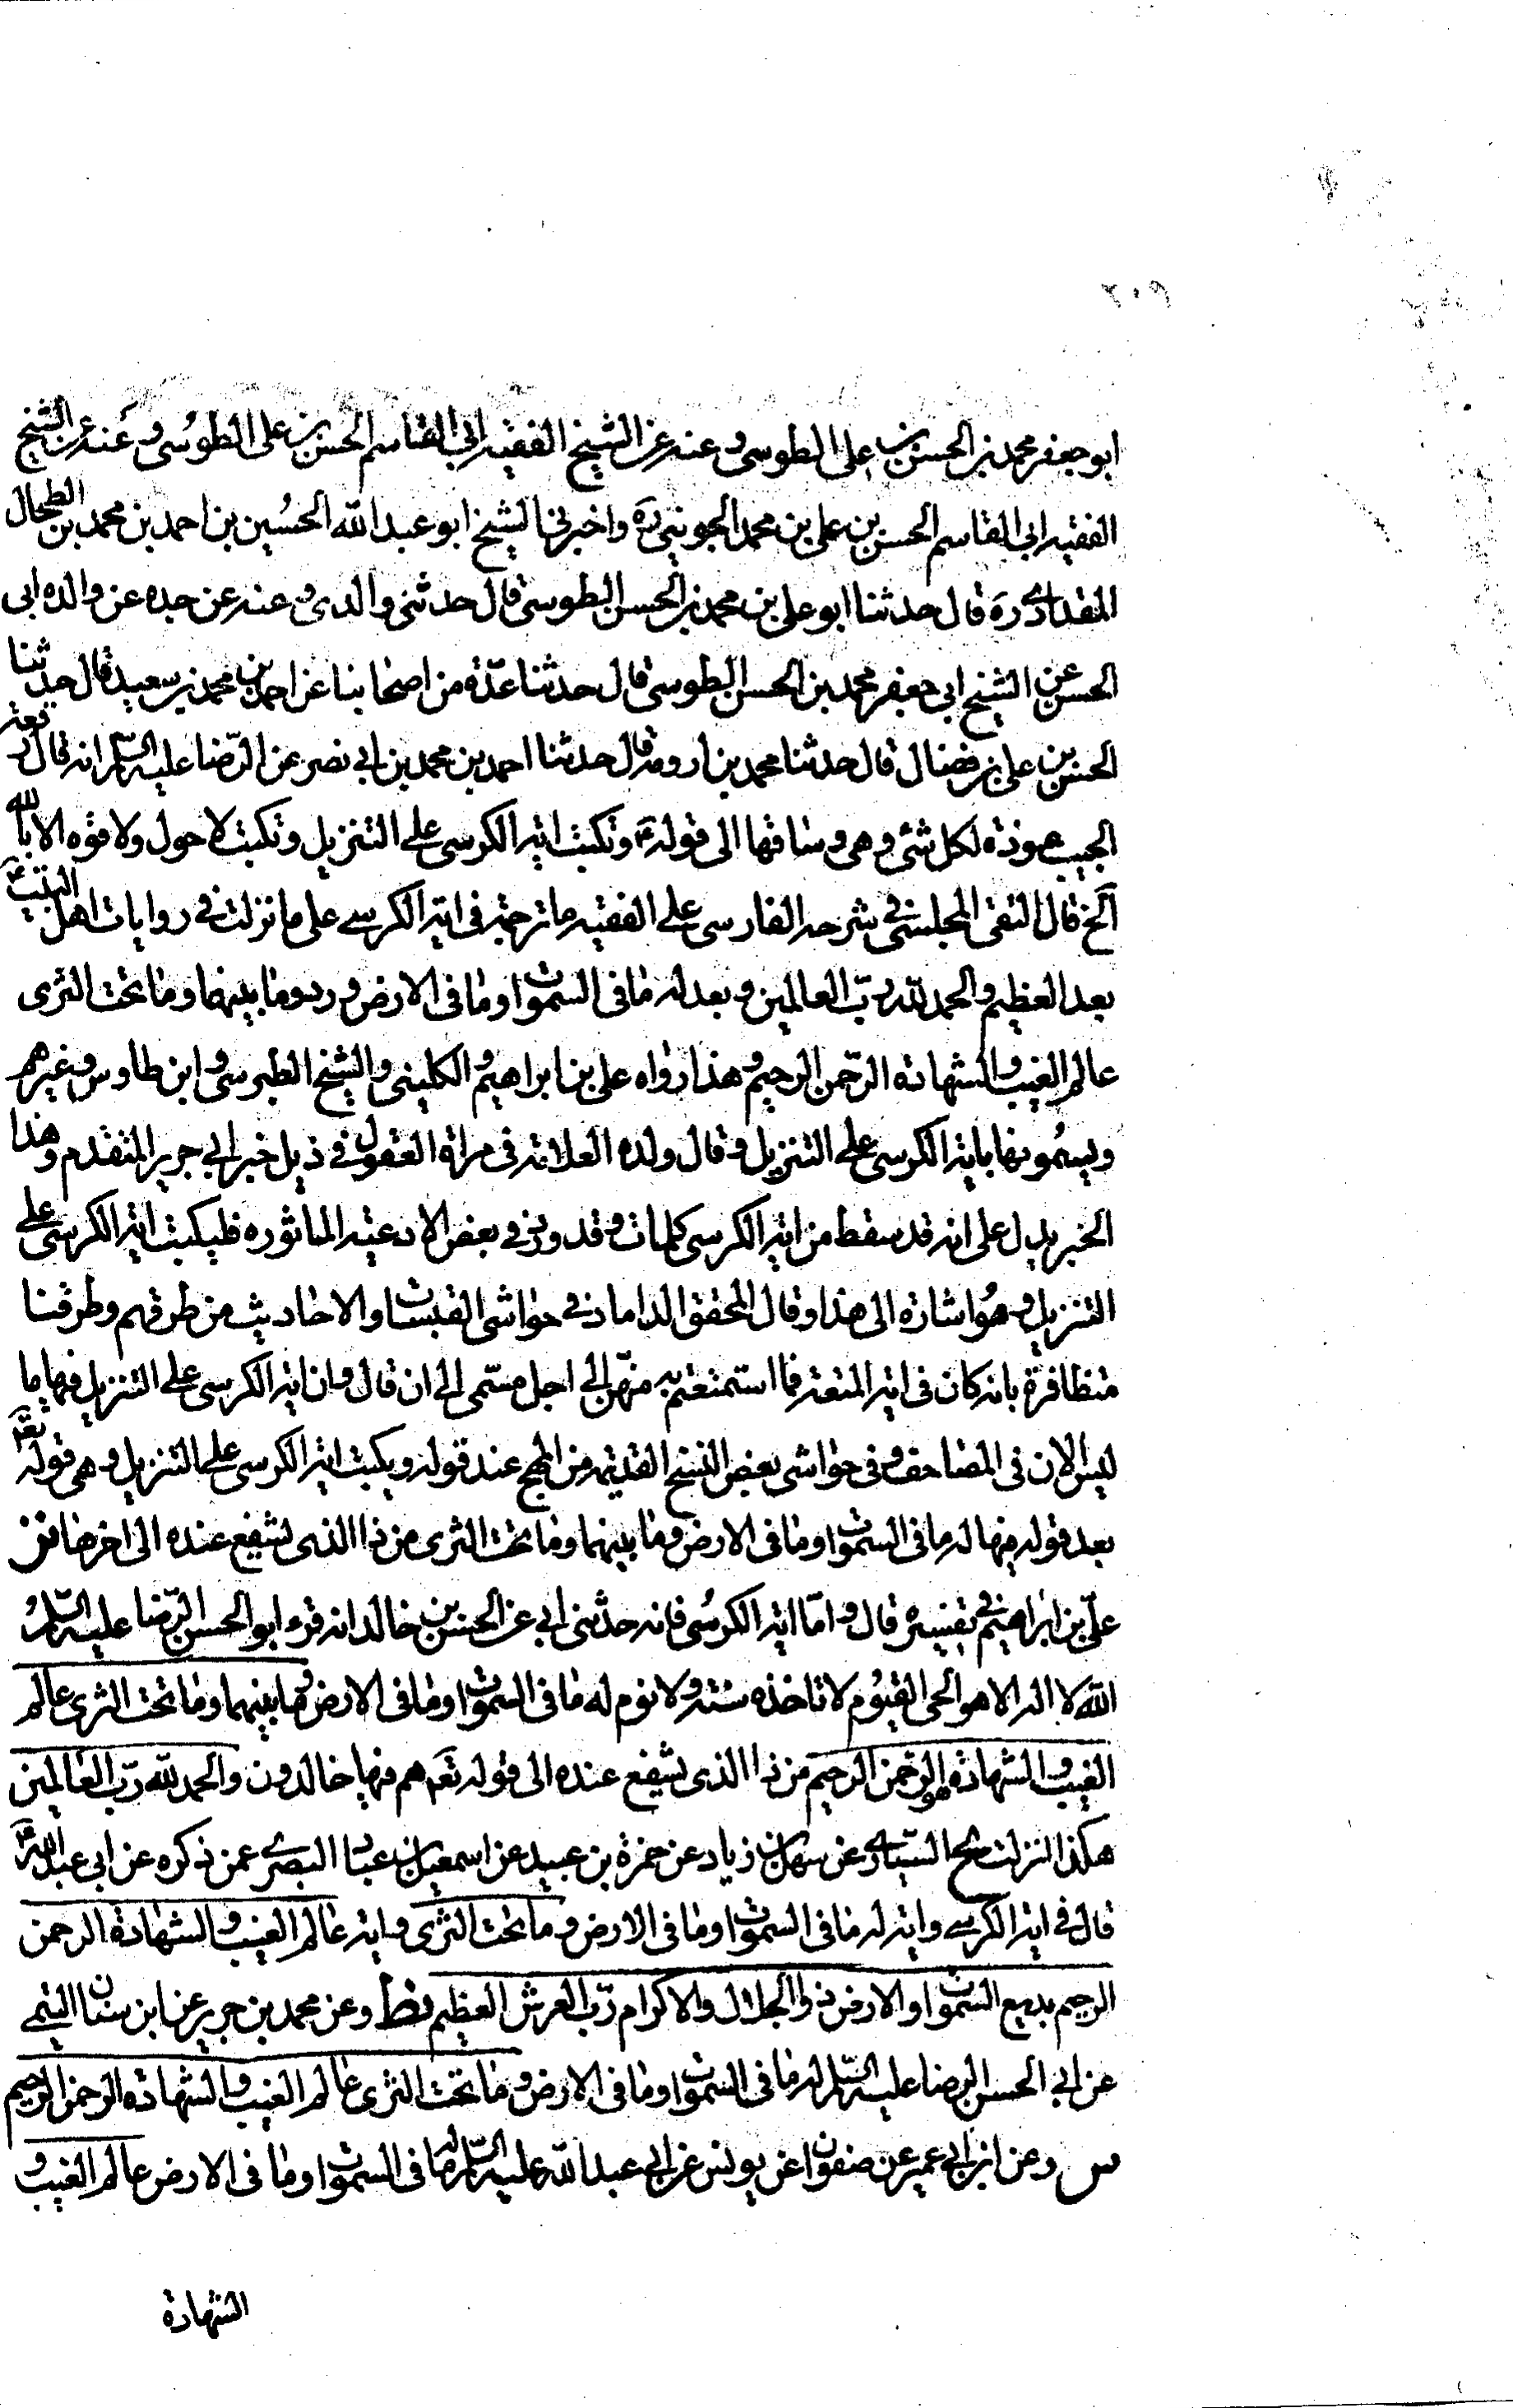 ابو جعفر محمد بن الحسن بن على الطوسى و عنه عن الشيخ الفقيه ابى القاسم الحسن بن على الطوسى و عنه عن الشيخ
الفقيه ابى القاسم الحسن بن على بن محمد الجوينى ره واخبرنا الشيخ ابو عبد الله الحسين بن احمد بن محمد بن الطحال
المقدادى ره قال حدثنا ابو على بن محمد بن الحسن الطوسى قال حدثنى والدى و عنه عن جده عن والده ابى
الحسن عن الشيخ ابى جعفر محمد بن الحسن الطوسى قال حدثنا عدّة من اصحابنا عن احمد بن محمد بن سعيد قال حدثنا
الحسن بن على بن فضال قال حدثنا محمد بن ارومه قال حدثنا احمد بن محمد بن ابى نصر عن الرّضا عليه السّلم انه قال رقعة
الجيب عوذة لكل شئ و هى و ساقها الى قوله ع وتكتب اية الكرسى على التنزيل وتكتب لا حول ولا قوه الا بالله
الخ قال التقى المجلسى فى شرحه الفارسى على الفقيه ما ترجمته فى اية الكرسى على ما نزلت فى روايات اهل البيت ع
بعد العظيم والحمد لله ربّ العالمين و بعد له ما فى السموات وما فى الارض ورد وما بينهما وما تحت الثرى
عالم الغيب والشهادة الرّحمن الرحيم وهذا رواه على بن ابراهيم و الكلينى والشيخ الطبرسى و ابن طاوس وغيرهم
ويسمّونها باية الكرسى على التنزيل و قال ولده العلامة فى مراة العقول فى ذيل خبر ابى جرير المتقدم وهذا
الخبر يدل على انه قد سقط من اية الكرسى كلمات وقد ورد فى بعض الادعية الماثوره فليكتب اية الكرسى على
التنزيل وهو اشارة الى هذا وقال المحقق الداماد فى حواشى القبسات والاحاديث من طرقهم وطرقنا
متظافرة بانه كان فى اية المتعة فما استمتعتم به منهنّ الى اجل مسّمى الى ان قال وان اية الكرسى على التنزيل فيها ما
ليس الان فى المصاحف وفى حواشى بعض النسخ القديمة من المهج عند قوله ويكتب اية الكرسى على التنزيل وهى قوله تعم
بعد قوله فيها له ما فى السموات وما فى الارض وما بينهما وما تحت الثرى من ذا الذى يشفع عنده الى اخرها
علىّ بن ابراهيم فى تفسيره قال و امّا اية الكرسى فانه حدثنى ابى عن الحسين بن خالد انه قرء ابو الحسن الرّضا عليه السّلم
الله لا اله الا هو الحى القيّوم لا تاخذه سنة ولا نوم له ما فى السموات وما فى الارض وما بينهما وما تحت الثرى عالم
الغيب والشهادة هو الرّحمن الرحيم من ذا الذى يشفع عنده الى قوله تعم هم فيها خالدون والحمد لله ربّ العالمين
هكذا نزلت السيّارى عن سهل بن زياد عن حمزة بن عبيد عن اسمعيل بن عباد البصرى عمن ذكره عن ابى عبد الله ع
قال فى اية الكرسى واية له ما فى السموات وما فى الارض وما تحت الثرى و اية عالم الغيب والشهادة الرحمن
الرحيم بديع السموات والارض ذو الجلال والاكرام ربّ العرش العظيم وعن محمد بن جرير عن ابن سنان
عن ابى الحسن الرضا عليه السّلم له ما فى السموات وما فى الارض وما تحت الثرى عالم الغيب والشهادة الرحمن الرحيم
وعن ابن ابى عمير عن صفوان عن يونس عن ابى عبد الله عليه السّلم له ما فى السموات وما فى الارض عالم الغيب و
الشهادة